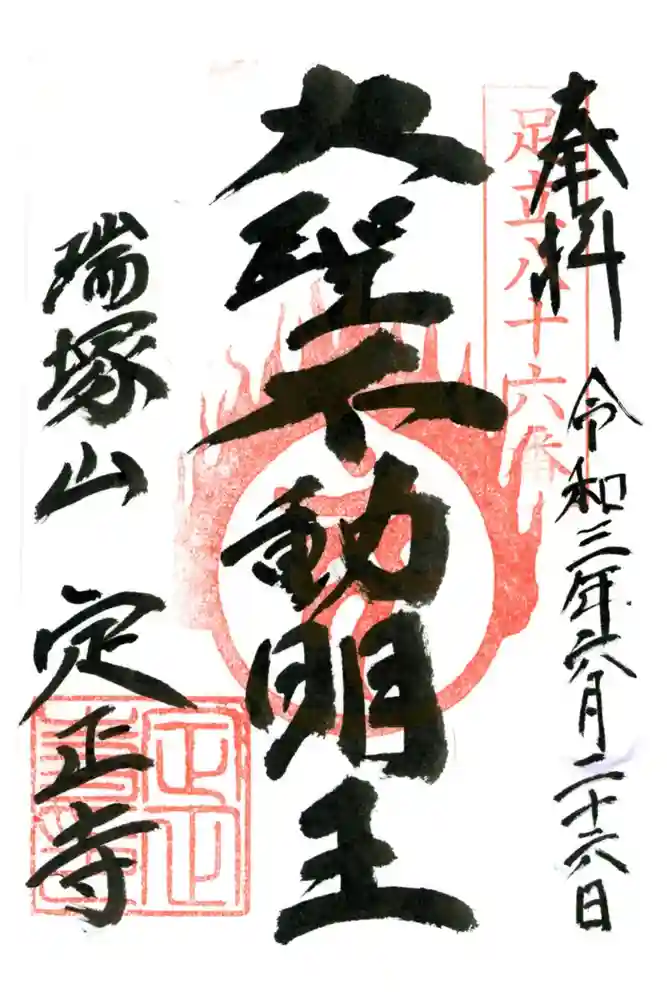 奉拝
令和三年六月二十六日
足立八十六番
大聖不動明王
瑞塚山
定正寺